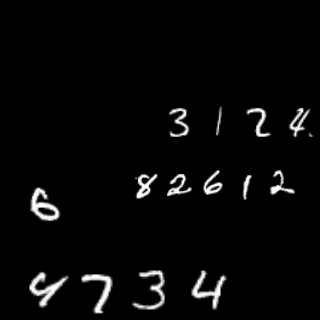 3124
82612
6
4734